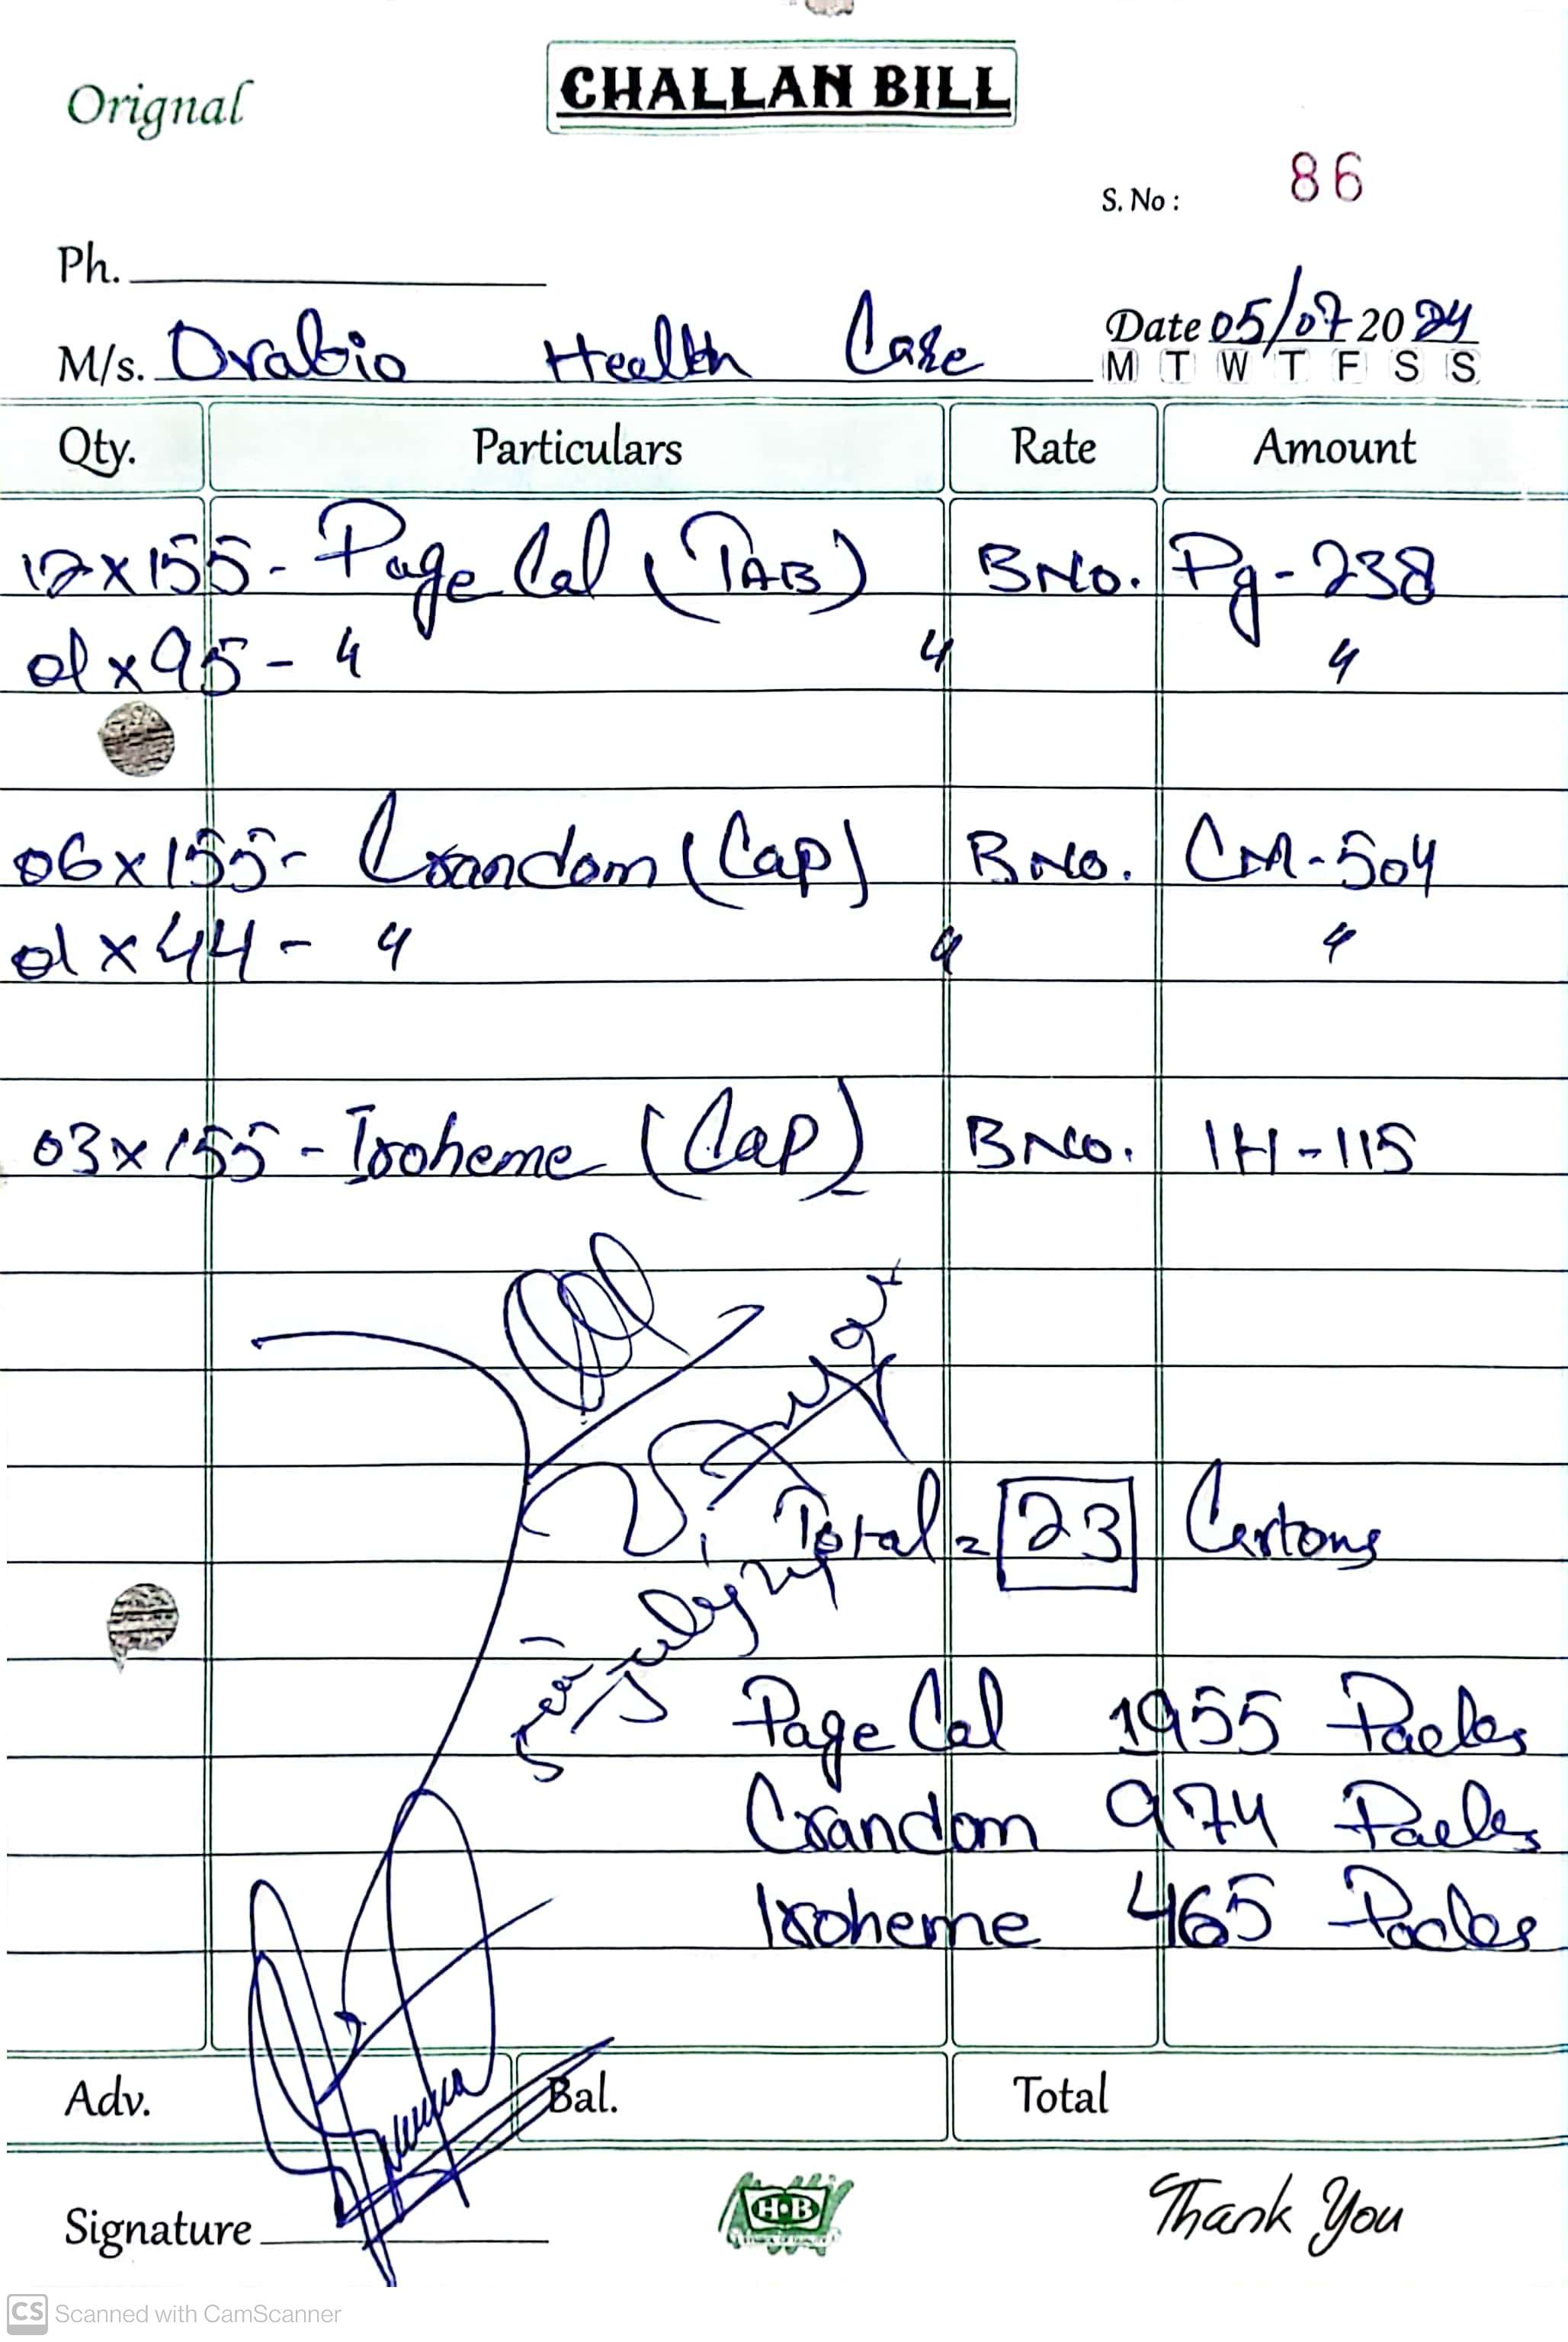 Orignal
CHALLAN BILL
S. No : 86
Ph.
M/s. Orabio Health Care
Date 05/07 2024
M T W T F S S
Qty. Particulars Rate Amount
12x155 - Page Cal (TAB) B No. Pg-238
01x95 - 〃 〃 〃
06x155 - Crandom (Cap) B No. CM-504
01x44 - 〃 〃 〃
03x155 - Isoheme (Cap) B No. IH-115
Total = 23 Cartons
Page Cal 1955 Packs
Crandom 974 Packs
Isoheme 465 Packs
Adv. Bal. Total
Signature
H·B
Thank You
CS Scanned with CamScanner